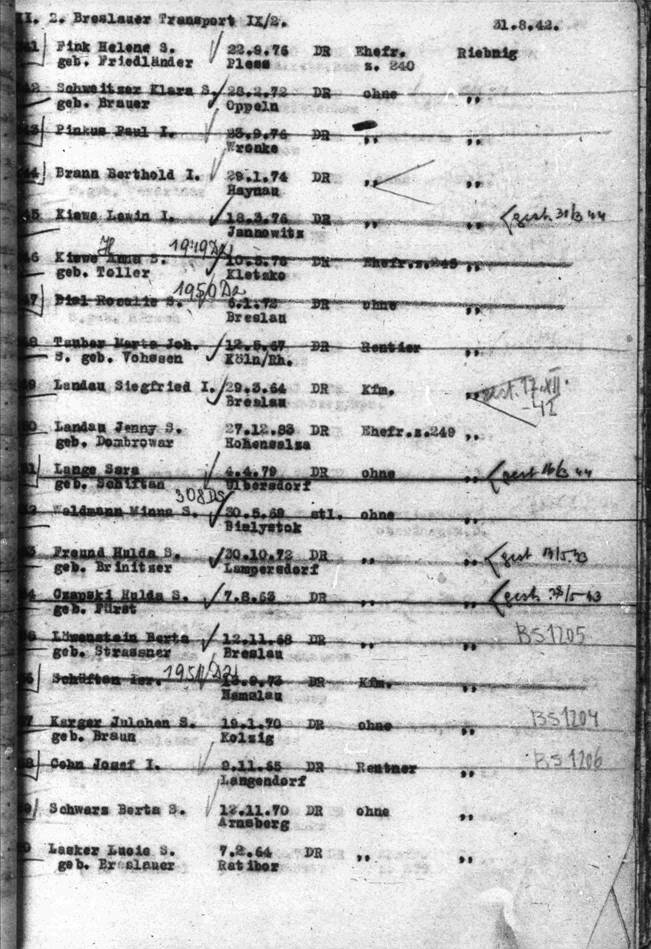 II. 2. Breslauer Transport IX/2. 31.8.42.
41 Pink Helene S. 22.9.76 DR Ehefr. Riebnig
geb. Friedländer Pless z. 240
42 Schweitzer Klara S. 28.2.72 DR ohne ,,
geb. Brauer Oppeln
43 Pinkus Paul I. 23.9.74 DR ,, ,,
Wronke
44 Brann Berthold I. 29.1.74 DR ,, ,,
Haynau
45 Kiewe Lewin I. 18.3.76 DR ,, ,, gest. 31/3 44
Jannowitz
1949 Da
46 Kiewe Anna S. 10.3.76 DR Ehefr.z.245 ,,
geb. Toller Kletzko
1950 Da
47 Rosalie S. 6.1.72 DR ohne ,,
Breslau
48 Tauber Marta Joh. 12.5.67 DR Rentier ,,
S. geb. Vohssen Köln/Rh.
49 Landau Siegfried I. 29.3.64 DR Kfm. ,, gest. 17.XII.
Breslau -42
50 Landau Jenny S. 27.12.83 DR Ehefr.z.249 ,,
geb. Dombrower Hohensalza
51 Lange Sara 4.4.79 DR ohne ,, gest 16/3 44
geb. Schiftan Ulbersdorf
308 Ds
52 Waldmann Minna S. 30.5.69 stl. ohne ,,
Bialystok
53 Freund Hulda S. 30.10.72 DR ,, ,, gest 43
geb. Brinitzer Lampersdorf
54 Czapski Hulda S. 7.8.63 DR ,, ,, gest. 43
geb. Fürst
55 Löwenstein Berta 12.11.68 DR ,, ,, BS1205
geb. Strassner Breslau
1951/Da
56 Schüftan Isr. 13.9.73 DR Kfm. ,,
Namslau
57 Karger Julchen S. 19.1.70 DR ohne ,, BS1204
geb. Braun Kolzig
58 Cohn Josef I. 9.11.65 DR Rentner ,, BS1206
Langendorf
59 Schwarz Berta S. 12.11.70 DR ohne ,,
Arnsberg
60 Lasker Lucie S. 7.2.64 DR ,, ,,
geb. Breslauer Ratibor